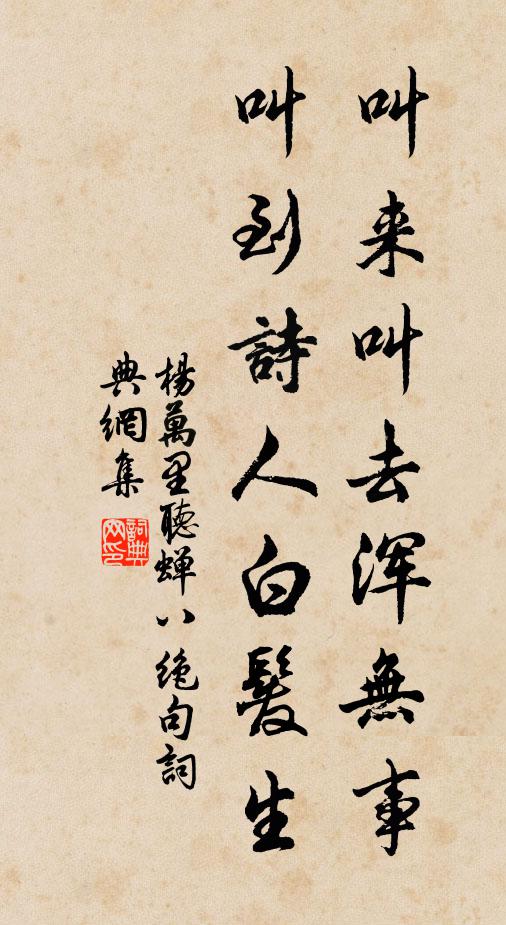 叫来叫去浑無事
叫到詩人白髮生
楊萬里聽蝉八绝句詞
典網集
詞典网印